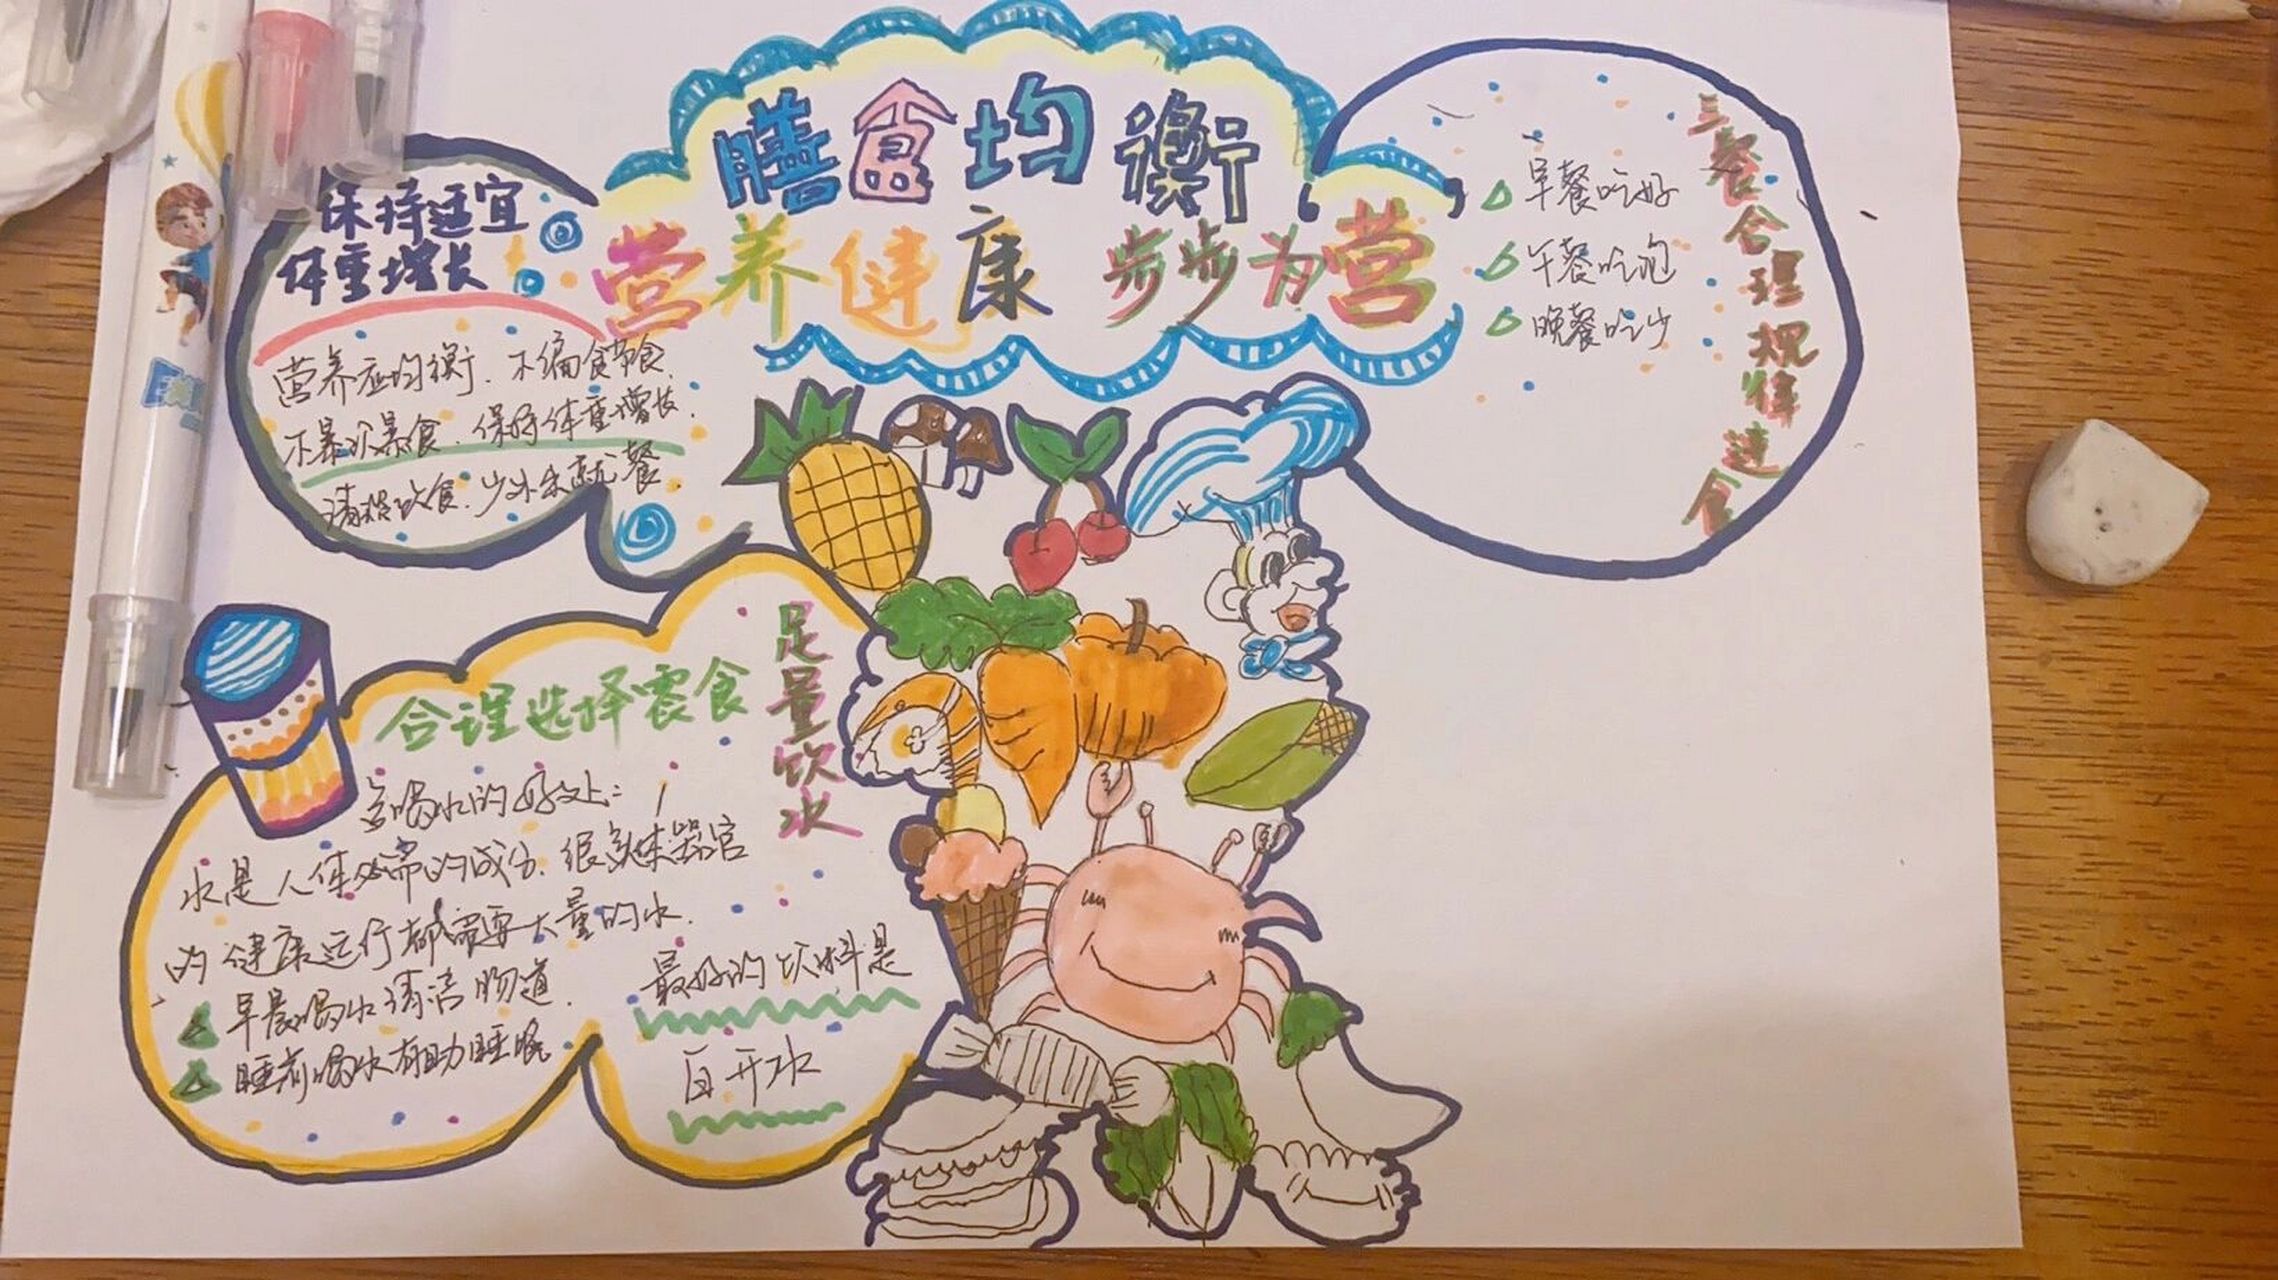 膳食均衡
营养健康 步步为营
保持适宜
体重增长
营养应均衡、不偏食节食、
不暴饮暴食、保持体重增长、
清淡饮食、少外出就餐
三餐合理规律进食
早餐吃好
午餐吃饱
晚餐吃少
合理选择零食
足量饮水
多喝水的好处:
水是人体必需的成分、很多体器官
的健康运行都需要大量的水.
早晨喝水清洁肠道.
睡前喝水有助睡眠
最好的饮料是
白开水